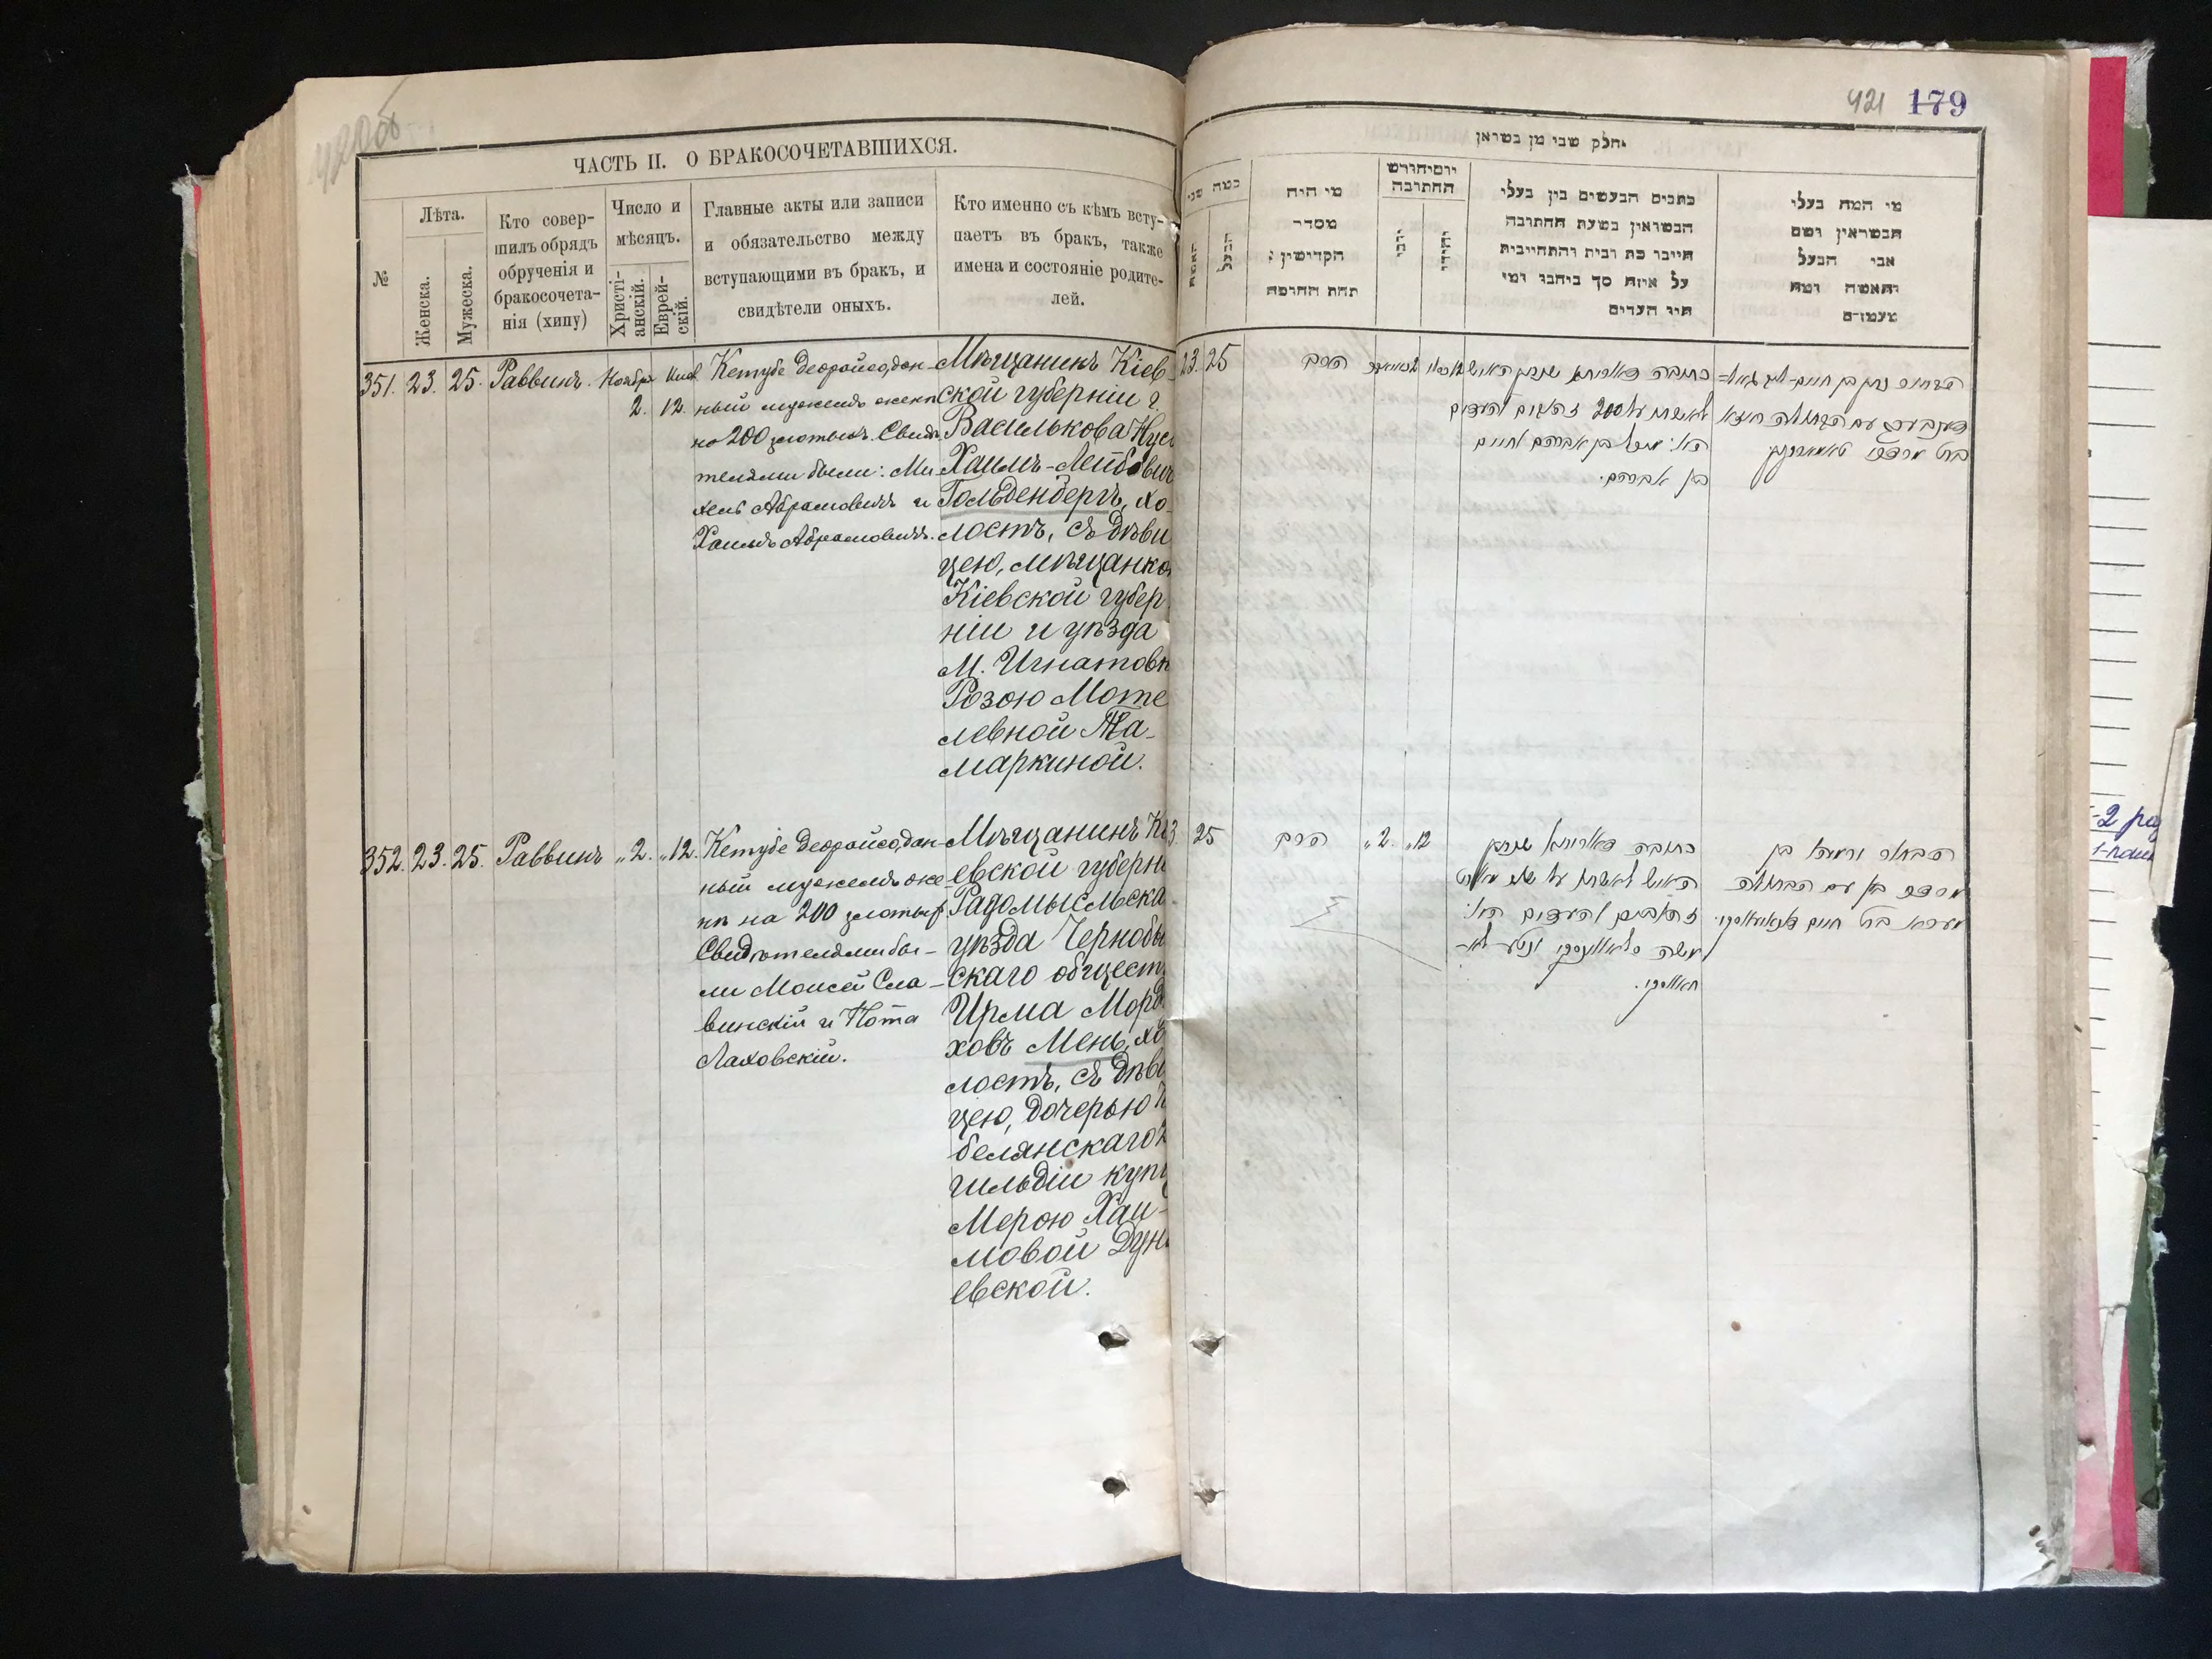 ЧАСТЬ II. О БРАКОСОЧЕТАВШИХСЯ.
№
Лѣта.
Женска.
Мужеска.
Кто совер-
шилъ обрядъ
обрученія и
бракосочета-
нія (хипу)
Число и
мѣсяцъ.
Христі-
анскій.
Еврей-
скій.
Главные акты или записи
и обязательство между
вступающими въ бракъ, и
свидѣтели оныхъ.
Кто именно съ кѣмъ всту-
паетъ въ бракъ, также
имена и состояніе родите-
лей.
351. 23. 25. Раввинъ. Ноябр.
2. 12.
Кетубе деорайсо, дан-
ный мужемъ женѣ
на 200 злотыхъ. Свидѣ
телями были: Ми
хель Абрамовичъ и
Хаимъ Абрамовичъ.
Мѣщанинъ Кіев-
ской губерніи г.
Василькова
Хаимъ-Лейбовичъ
Гольденбергъ, хо-
лостъ, съ дѣви
цею, мѣщанкой
Кіевской губер
ніи и уѣзда
М. Игнатовк
Розою Моте
левной Та-
маркиной.
352. 23. 25. Раввинъ „ 2. „ 12.
Кетубе деорайсо, дан-
ный мужемъ же-
нѣ на 200 злотых
Свидѣтелями бы-
ли Моисей Сла-
винскій и Нота
Лаховскій.
Мѣщанинъ Кі
евской губерн
Радомысльска
уѣзда Чернобы
скаго обществ
Ирма Морд
ховъ Мень, хо
лостъ, съ дѣви
цею, дочерью
белянскаго
гильдіи купц
Мерою Хаи-
мовой Дун
евской.
421 179
חלק שני מן נשואין
כמה שני
האשה
הבעל
מי היה
מסדר
הקדושין
תחת החופה
יום וחודש
החתונה
כתבים הנעשים בין בעלי
הנשואין בשעת החתונה
חייבו כת ובית והתחייבות
על איזה סך ביחבו ומי
היו העדים
מי המה בעלי
הנשואין ושם
אבי הבעל
והאשה ומה
מעמדם
23. 25 הרב
כתובה דאורייתא שנתן האיש
לאשתו על 200 זהובים והעדים
בן אברהם וחיים
בן אברהם.
25 הרב „ 2. „ 12
כתובה דאורייתא שנתן
האיש לאשתו על
זהובים והעדים הי׳
משה סלאווינסקי
הבחור ירמיה בן
מרדכי מן עם הבתולה
מערא בת חיים דונאיעווסקי.